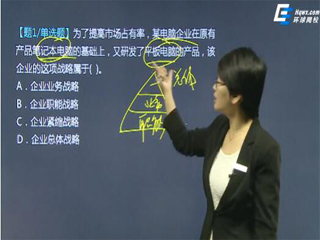 Hqwx.com
环球网校
【题1/单选题】为了提高市场占有率，某电脑企业在原有
产品笔记本电脑的基础上，又研发了平板电脑的产品，该
企业的这项战略属于( )。
A．企业业务战略
B．企业职能战略
C．企业紧缩战略
D．企业总体战略
业务
职能